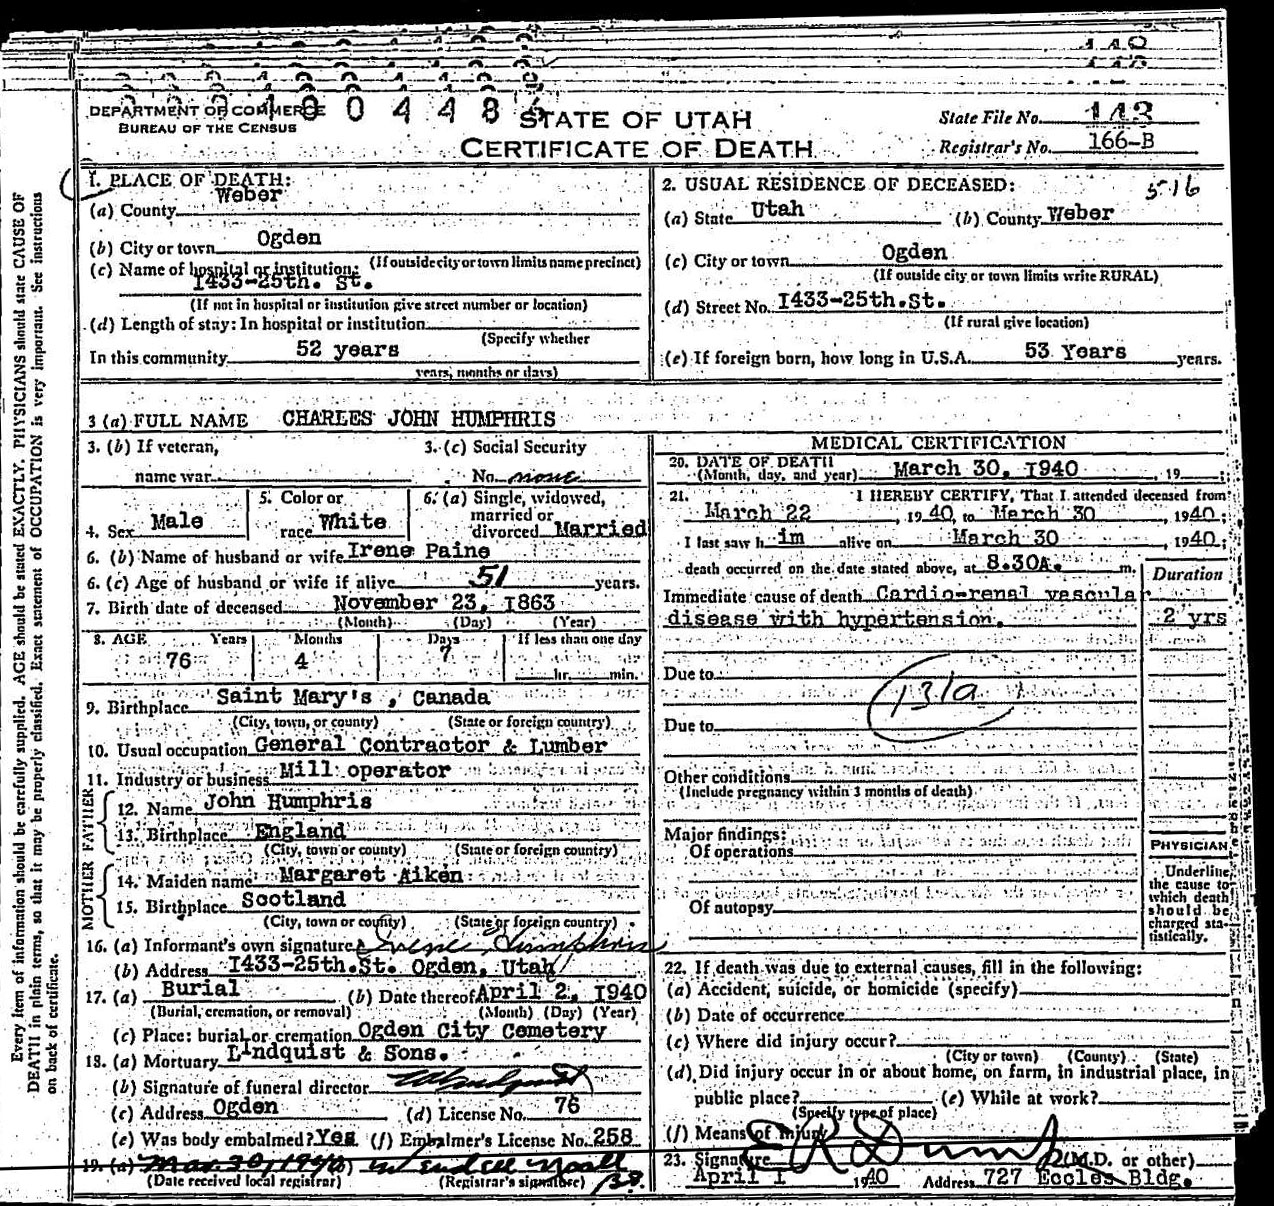 DEPARTMENT OF COMMERCE
BUREAU OF THE CENSUS
STATE OF UTAH
CERTIFICATE OF DEATH
State File No. 143
Registrar's No. 166-B
Every item of information should be carefully supplied. AGE should be stated EXACTLY. PHYSICIANS should state CAUSE OF
DEATH in plain terms, so that it may be properly classified. Exact statement of OCCUPATION is very important. See instructions
on back of certificate.
1. PLACE OF DEATH:
(a) County Weber
(b) City or town Ogden
(If outside city or town limits name precinct)
(c) Name of hospital or institution:
1433-25th. St.
(If not in hospital or institution give street number or location)
(d) Length of stay: In hospital or institution
(Specify whether
In this community 52 years
years, months or days)
2. USUAL RESIDENCE OF DECEASED: 516
(a) State Utah (b) County Weber
(c) City or town Ogden
(If outside city or town limits write RURAL)
(d) Street No. 1433-25th.St.
(If rural give location)
(e) If foreign born, how long in U.S.A. 53 Years years.
3 (a) FULL NAME CHARLES JOHN HUMPHRIS
3. (b) If veteran,
name war
3. (c) Social Security
No. none
4. Sex Male
5. Color or
race White
6. (a) Single, widowed,
married or
divorced Married
6. (b) Name of husband or wife Irene Paine
6. (c) Age of husband or wife if alive 51 years.
7. Birth date of deceased November 23, 1863
(Month) (Day) (Year)
8. AGE Years Months Days If less than one day
76 4 7
hr. min.
9. Birthplace Saint Mary's , Canada
(City, town, or county) (State or foreign country)
10. Usual occupation General Contractor & Lumber
11. Industry or business Mill operator
FATHER
12. Name John Humphris
13. Birthplace England
(City, town or county) (State or foreign country)
MOTHER
14. Maiden name Margaret Aiken
15. Birthplace Scotland
(City, town or county) (State or foreign country)
16. (a) Informant's own signature Irene Humphris
(b) Address 1433-25th.St. Ogden, Utah
17. (a) Burial (b) Date thereof April 2, 1940
(Burial, cremation, or removal) (Month) (Day) (Year)
(c) Place: burial or cremation Ogden City Cemetery
18. (a) Mortuary Lindquist & Sons.
(b) Signature of funeral director
(c) Address Ogden (d) License No. 76
(e) Was body embalmed? Yes (f) Embalmer's License No. 258
19. (a) Mar. 30, 1940
(Date received local registrar) (Registrar's signature)
MEDICAL CERTIFICATION
20. DATE OF DEATH
(Month, day, and year) March 30, 1940 , 19
21. I HEREBY CERTIFY, That I attended deceased from
March 22 , 1940, to March 30 , 1940;
I last saw him alive on March 30 , 1940;
death occurred on the date stated above, at 8.30A. m.
Duration
Immediate cause of death Cardio-renal vascular
disease with hypertension. 2 yrs
Due to
131a
Due to
Other conditions
(Include pregnancy within 3 months of death)
Major findings:
Of operations
Of autopsy
PHYSICIAN
Underline
the cause to
which death
should be
charged sta-
tistically.
22. If death was due to external causes, fill in the following:
(a) Accident, suicide, or homicide (specify)
(b) Date of occurrence
(c) Where did injury occur?
(City or town) (County) (State)
(d) Did injury occur in or about home, on farm, in industrial place, in
public place? (e) While at work?
(Specify type of place)
(f) Means of injury
23. Signature E R Dumke (M.D. or other)
April 1 1940 Address 727 Eccles Bldg.